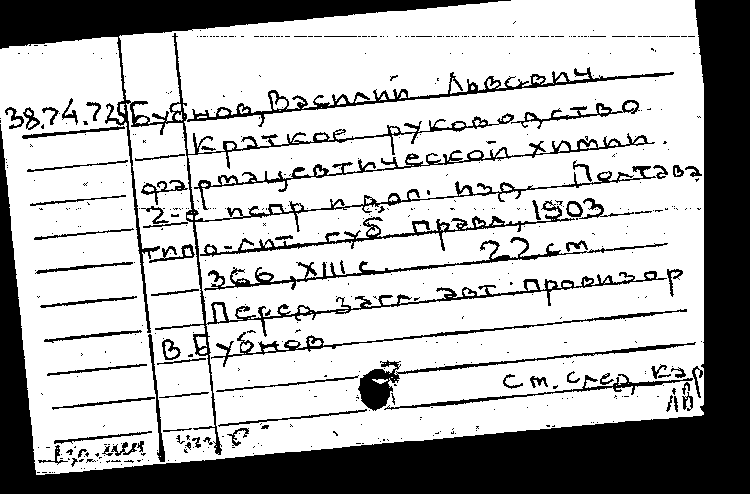 38.74.725 Бубнов, Василий Львович.
Краткое руководство
фармацевтической химии.
2-е испр и доп. изд. Полтава
типо-лит. губ правл., 1903
366, XIII с. 22 cm.
Перед загл. авт: провизор
В. Бубнов.
См. след. кар
АВ